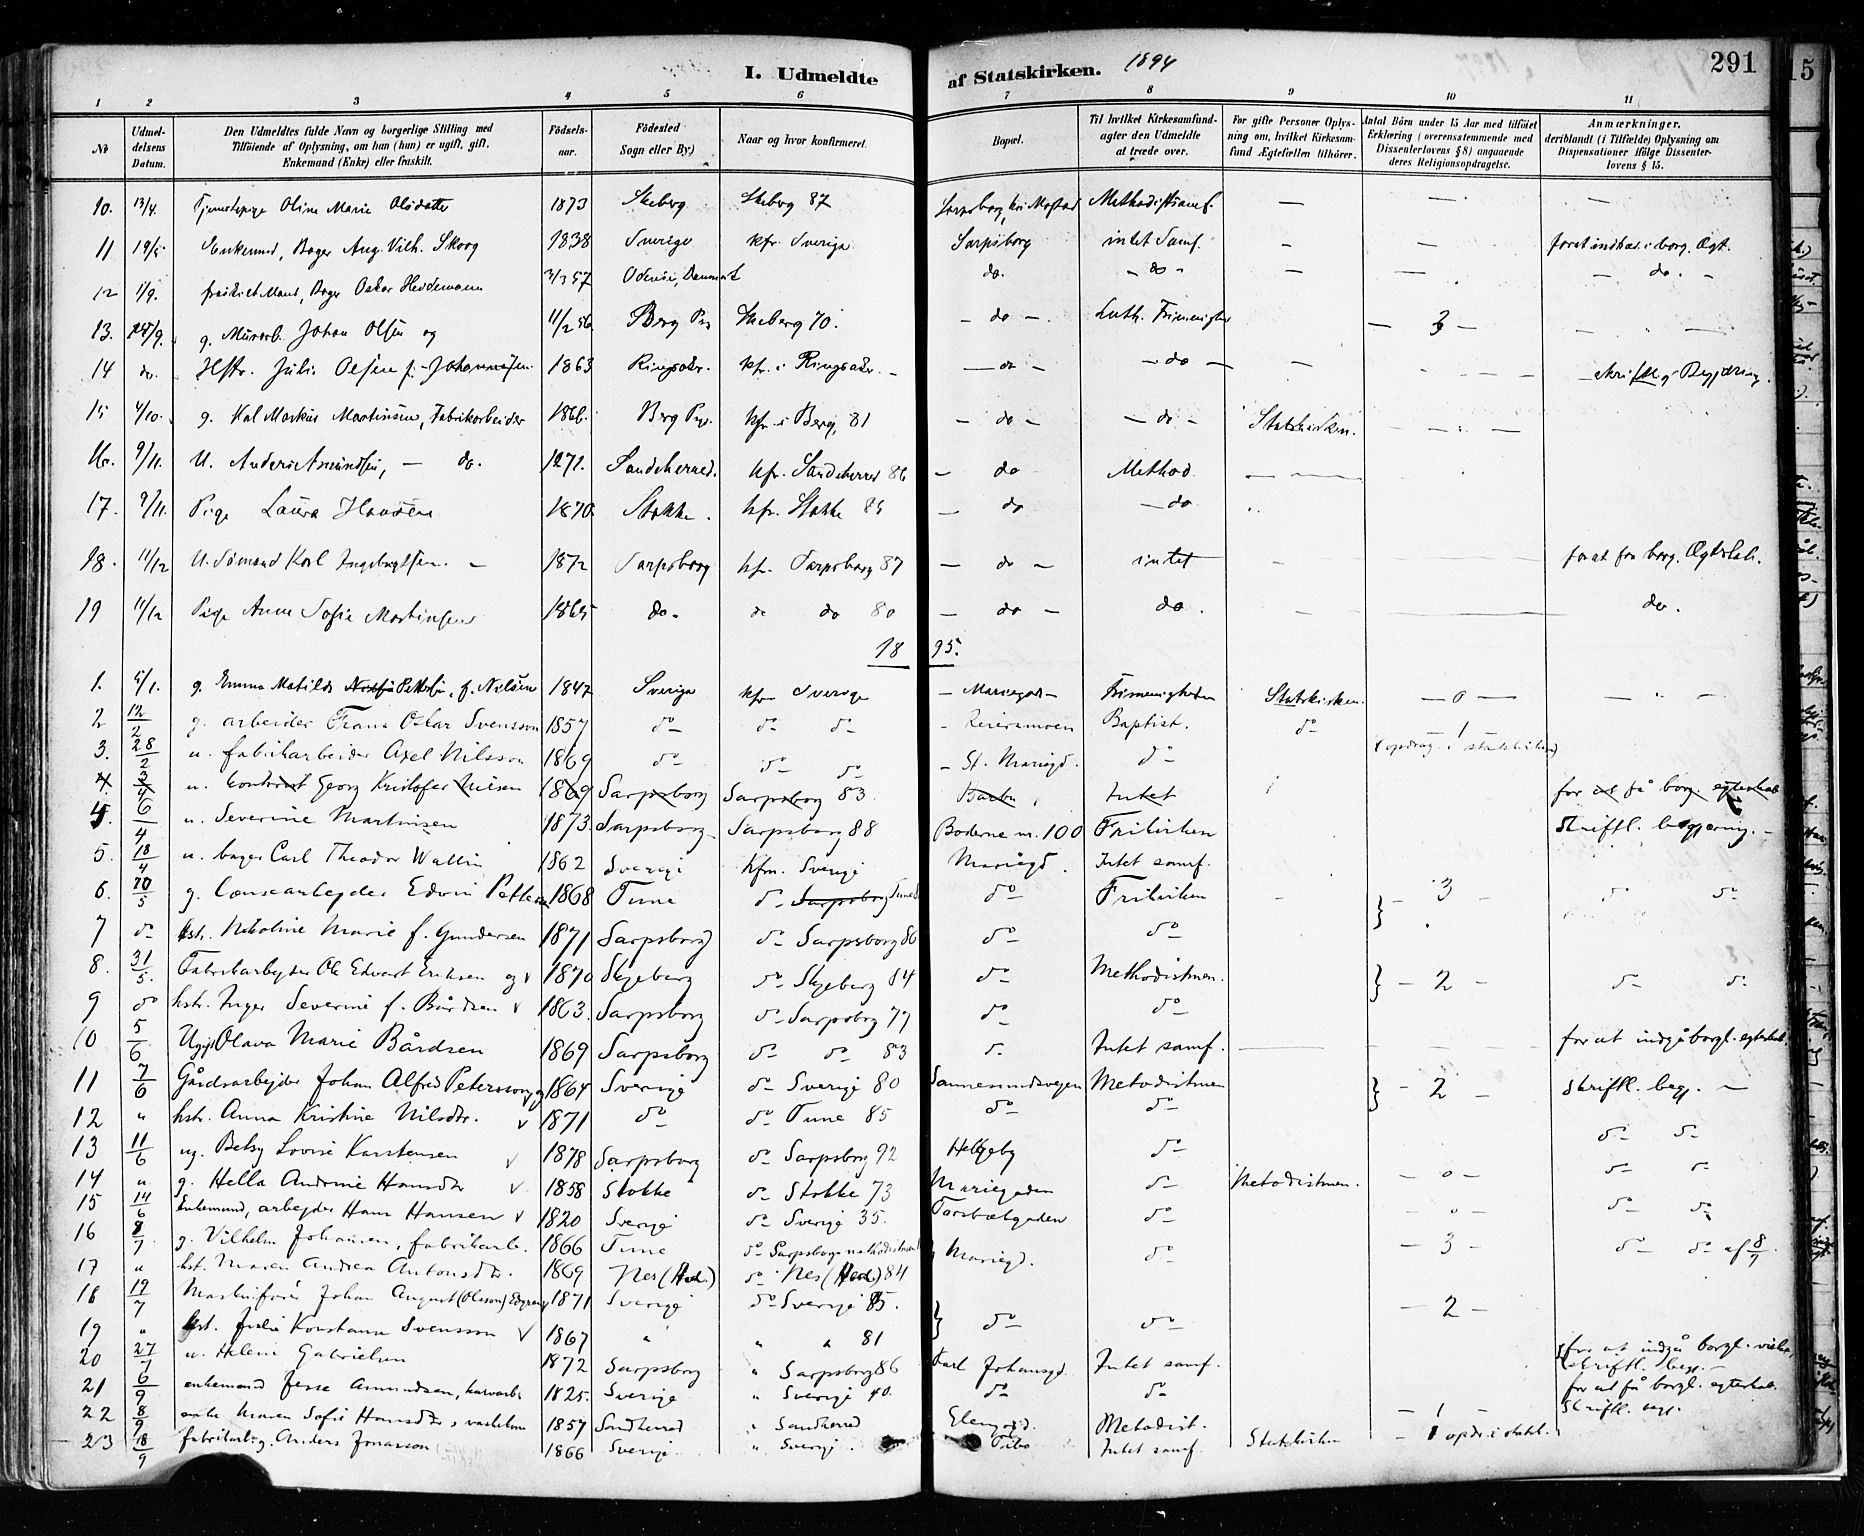 I. Udmeldte af Statskirken. 1894 291
1 2 3 4 5 6 7 8 9 10 11
No
Udmel-delsens Datum.
Den Udmeldtes fulde Navn og borgerlige Stilling med Tilføiende af Oplysning, om han (hun) er ugift, gift, Enkemand (Enke) eller fraskilt.
Fødsels-aar.
Fødested Sogn eller By:)
Naar og hvor konfirmeret.
Bopæl.
Til hvilket Kirkesamfund agter den Udmeldte at træde over.
For gifte Personer Oplys-ning om, hvilket Kirkesam-fund Ægtefællen tilhører.
Antal Børn under 15 Aar med tilføiet Erklæring (overensstemmende med Dissenterlovens § 8) angaaende deres Religionsopdragelse.
Anmærkninger, deriblandt (i Tilfælde) Oplysning om Dispensationer ifølge Dissenter-lovens § 15.
10. 13/4. Tjenestepige Oline Marie Olsdatter 1873 Skeberg Skeberg 87 Sarpsborg Methodistsamf. — — —
11 19/5 Enkemand, Bager Aug. Vilh. Skoog 1838 Sverige kfr. Sverige Sarpsborg intet Samf. — — borg. Ægt.
12 1/9. fraskilt Mand, Bager Oskar Heidemann 3/3 57 Odense, Danmark do. - do - — — - do. -
13. 24/9. g. Murarb. Johan Olsen og 11/2 56 Berg Pr. Skeberg 70. - do - Luth. Frimenighet — 3 —
14 do. Hstr. Julie Olsen f. Johannesen 1863 Ringsaker. kfr. i Ringsaker. - do - - do - — skriftlig Begjæring.
15 4/10. g. Karl Markus Martinsen, Fabrikarbeider 1866. Berg Pr. kfr. i Berg, 81 - do - - do - Statskirken.
16. 9/11. U. Anders Amundsen, - do. 1871. Sandeherred. kfr. Sandeherred 86 - do Method.
17. 9/11. Pige Laura Hansen 1870 Stokke. kfr. Stokke 85 - do - do
18. 11/12 U. Sømand Karl Ingebrigtsen. - 1872 Sarpsborg kfr. Sarpsborg 87 - do - intet — for at faa borg. Ægteskab.
19 11/12 Pige Anne Sofie Martinsen 1865 do. do do 80 - do - do. do.
1895.
1. 5/1. g. Emma Matilde Pettersen, f. Nilsen 1847 Sverige kfr Sverige - Mariegad - Frimenigheden Statskirken. — 0 —
2 12/2 g. arbeider Frans Oskar Svensson 1857 do do do - Reiersmoen Baptist. do
3. 28/2 u. fabrikarbeider Axel Nilsson 1869 do do do - St. Mariegd. do 1 (opdrag. i statskirken)
4 3/4 u. kontorist Georg Kristofer Nilsen 1869 Sarpsborg Sarpsborg 83 Intet for at få borg. egteskab
4. 6/4 u. Severine Martinsen 1873. Sarpsborg. Sarpsborg 88 Boderne nr. 100 Frikirken Skriftl. begjæring. -
5. 18/4 u. bager Carl Theodor Wallin 1862 Sverige kfm. Sverige Mariegd. Intet samf.
6. 20/5 g. Conscarbejder Edvin Petterson 1868 Tune do Sarpsborg Tune do Frikirken - - 3 - do do
7 do hstr. Nikoline Marie f. Gundersen 1871 Sarpsborg do Sarpsborg 86 do do
8. 31/5. Fabrikarbejder Ole Edvart Eriksen og v 1870 Skjeberg do Skjeberg 84 do Methodistmen. - 2 - do do
9 do hstr. Inger Severine f. Bårdsen v 1863. Sarpsborg do Sarpsborg 77 do do
10 5/6 Ugift Olava Marie Bårdsen 1869 Sarpsborg do do 83 do Intet samf. for at indgå borgl. egteskab.
11 7/6 Gårdsarbejder Johan Alfred Petersson og 1864 Sverige do Sverige 80 Sannesundsvegen Metodistmen - 2 - skriftl. begj. -
12 " hstr. Anna Kristine Nilsdtr. v 1871 do do Tune 85 do do
13 11/6 ug. Betsy Lovise Karstensen v 1878 Sarpsborg do Sarpsborg 92 Helgeby do do do
14 " g. Hella Andrine Hansdtr v 1858 Stokke do Stokke 73 Mariegaden do Metodistmen. - 0 - do do
15 14/6 Enkemand, arbejder Hans Hansen v 1820 Sverige do Sverige 35. Torsbækgaden do - 0 - do do
16 8/7 g. Vilhelm Johansen, fabrikarb. 1866 Tune do Sarpsborgs methodistmen Mariegd. do - 3 - do do af 8/7.
17 " hst. Maren Andrea Antonsdtr. 1869 Nes (Hed.) do Nes (Hed.) 84
18 19/7 Maskinfører Johan August (Olsson) 1871 Sverige do Sverige 85. do do - 2 -
19 " hst. Julie Konstanse Svensson v 1867 " " " 81
20 27/7 u. Helene Gabrielsen 1872 Sarpsborg " Sarpsborg 86 Karl Johansgd. Intet samf. for at indgå borgl. skriftl. begj.
21 6/9 enkemand Jesse Amundsen, 1825. Sverige " Sverige 40. do do for at få borgl. egteskab.
22 8/9 enke Maren Sofie Hansdtr, 1857 Sandherred " Sandherred Metodist. - 1 - Skriftl. begj.
23 18/9 fabrikarb. g. Anders Jonasson 1866 Sverige " Sverige Intet samf. Statskirken - 1 opdr. i statsk.